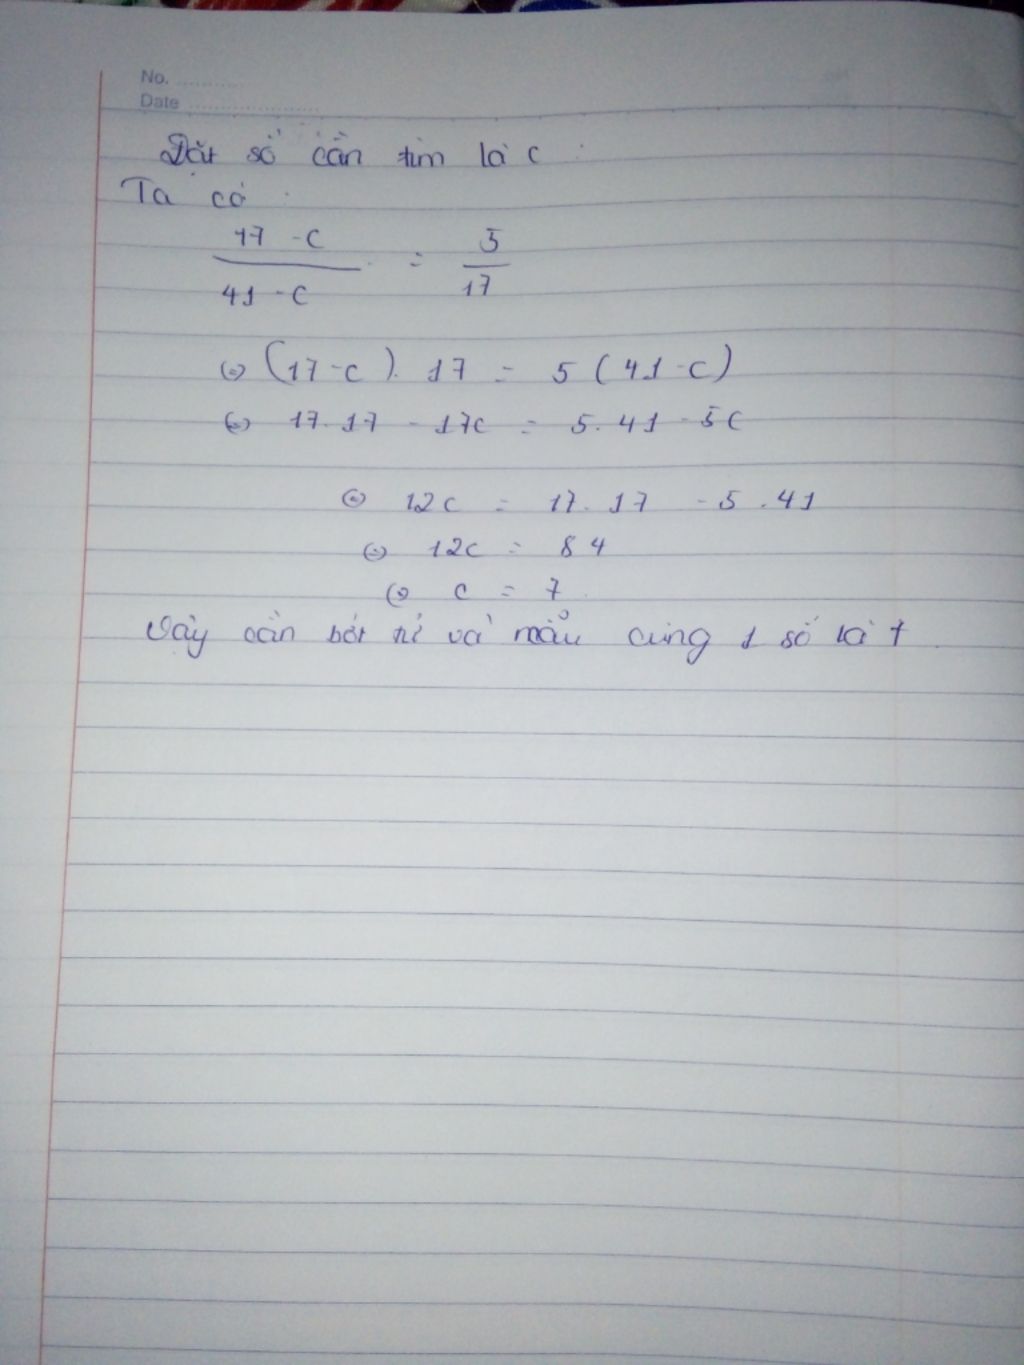 No. ............
Date ......................
Đặt số cần tìm là c
Ta có
17 - c / 41 - c = 5 / 17
(=) (17 - c). 17 = 5 (41 - c)
(=) 17.17 - 17c = 5.41 - 5c
(=) 12c = 17.17 - 5.41
(=) 12c = 84
(=) c = 7
Vậy cần bớt tử và mẫu cùng 1 số là 7